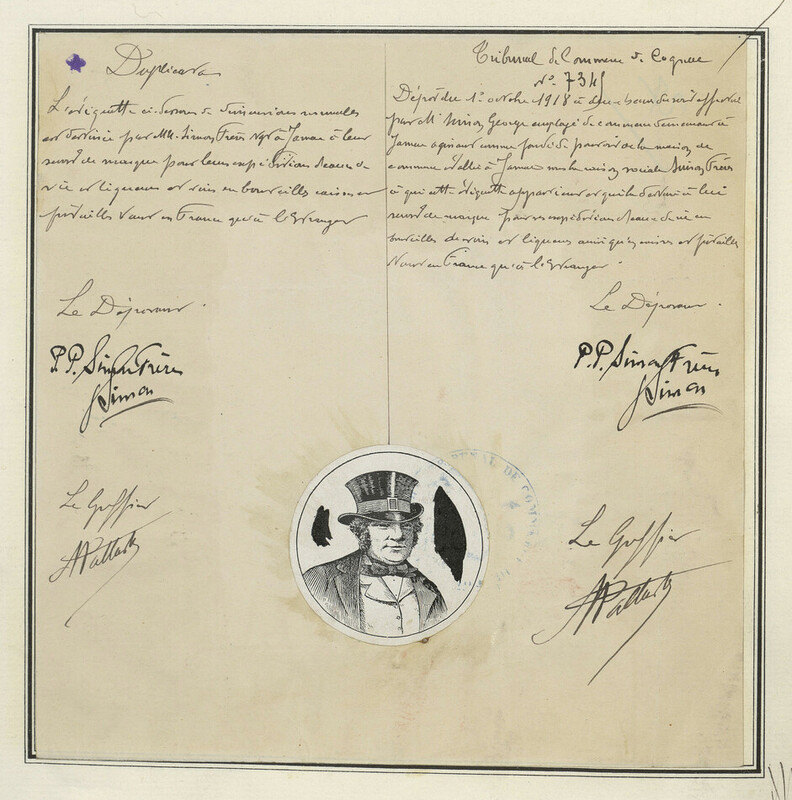 Duplicata
L'étiquette ci-dessous de dimensions usuelles
est destinée par MM. Simon Frères Ngts à Jarnac à leur
servir de marque pour leurs expéditions d'eaux de
vie et liqueurs et vins en bouteilles caisses et
futailles tant en France qu'à l'étranger
Le Déposant.
P.P. Simon Frères
Simon
Le Greffier
Tribunal de Commerce de Cognac
N° 734
Dépôt du 1er octobre 1918 à heures du soir
par M. Simon George employé de commerce demeurant à
Jarnac agissant comme fondé de pouvoir de la maison de
commerce établie à Jarnac sous la raison sociale Simon Frères
à qui cette étiquette appartient et qu'elle destine à lui
servir de marque pour ses expéditions d'eaux de vie en
bouteilles de vins et liqueurs ainsi qu'en caisses et futailles
tant en France qu'à l'étranger.
Le Déposant.
P.P. Simon Frères
Simon
Le Greffier
TRIBUNAL DE COMMERCE